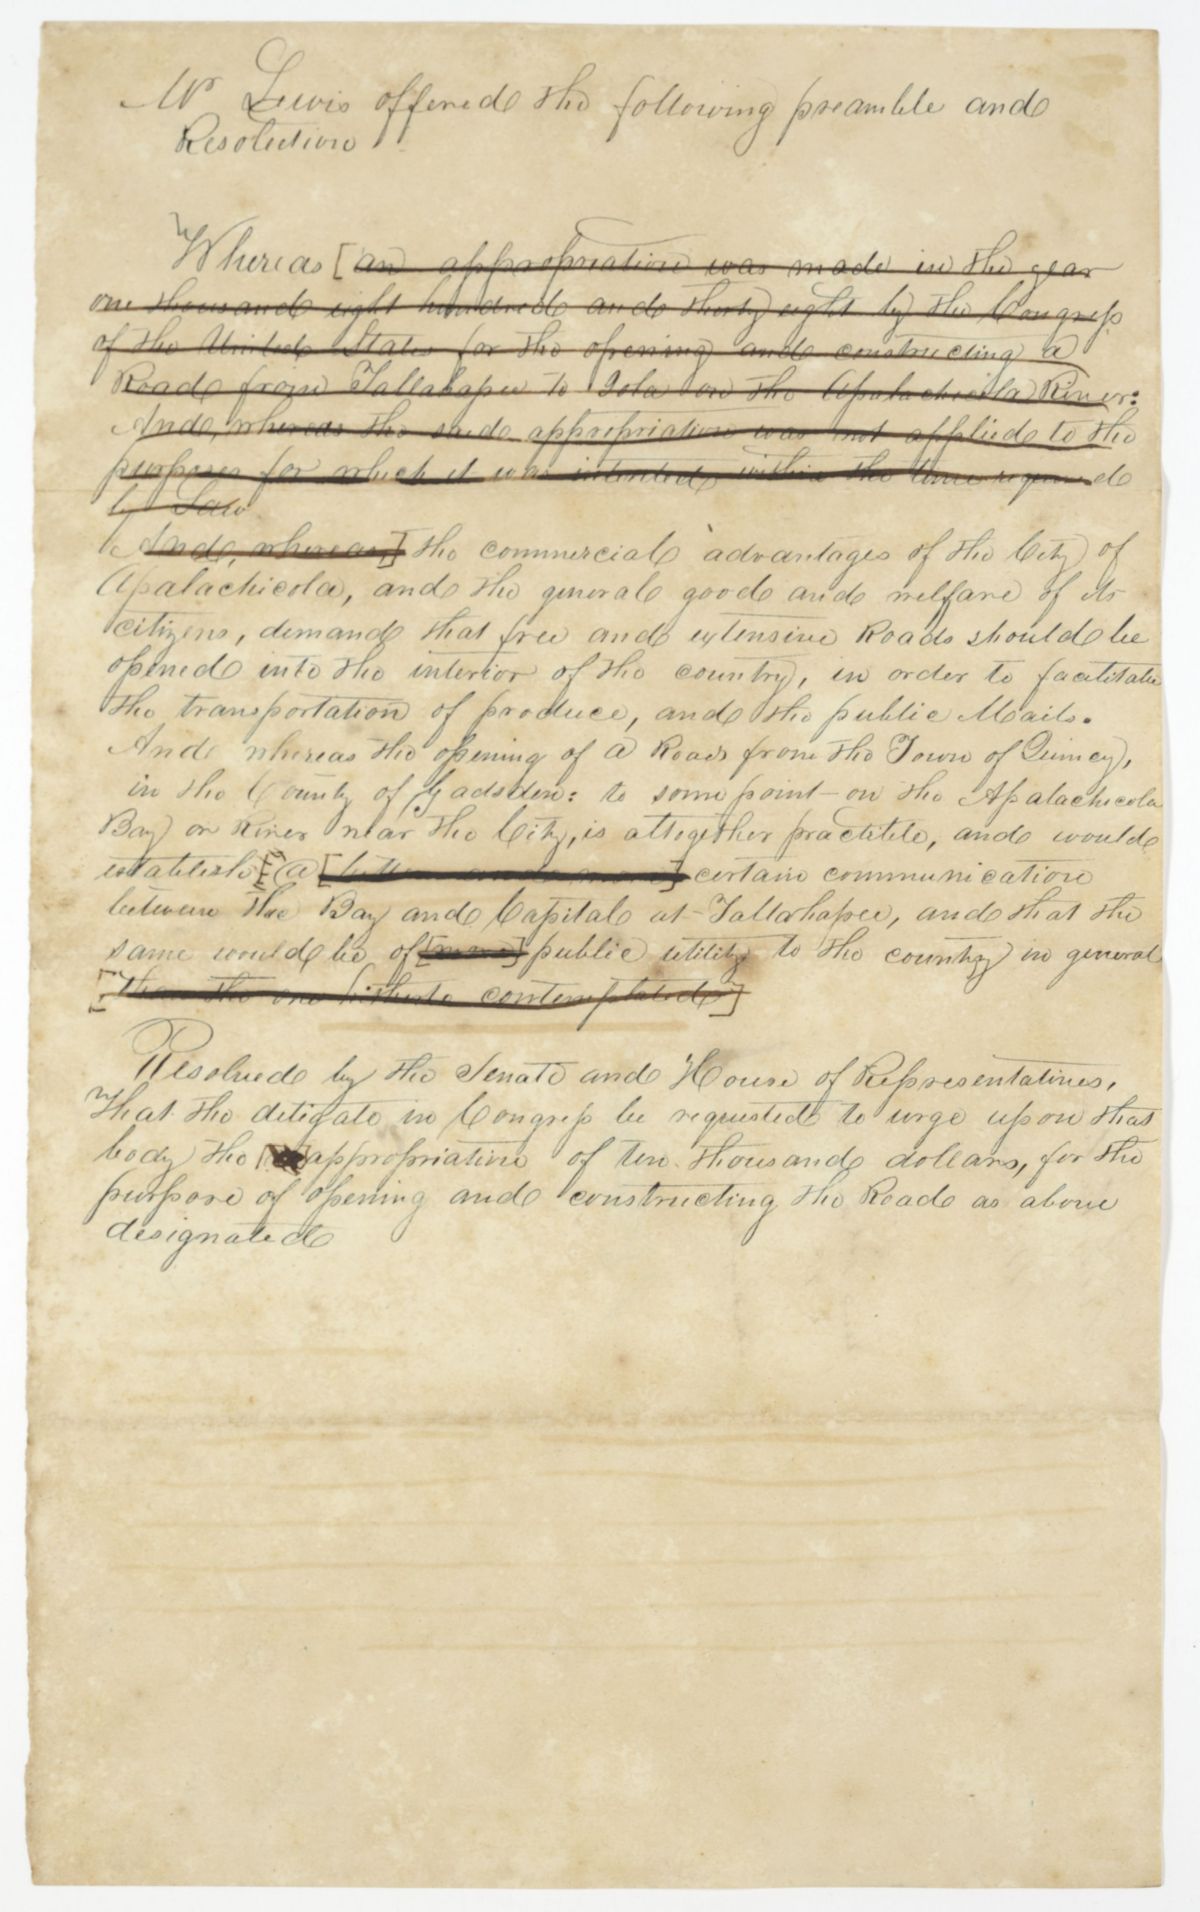 Mr Lewis offered the following preamble and
Resolution
Whereas [an appropriation was made in the year
one thousand eight hundred and thirty eight by the Congress
of the United States for the opening and constructing a
Road from Tallahassee to Iola on the Apalachicola River:
And, whereas the said appropriation was not applied to the
purposes for which it was intended within the time required
by Law
And, whereas] the commercial advantages of the City of
Apalachicola, and the general good and welfare of its
citizens, demand that free and extensive Roads should be
opened into the interior of the country, in order to facilitate
the transportation of produce, and the public Mails.
And whereas the opening of a Road from the Town of Quincy,
in the County of Gadsden: to some point on the Apalachicola
Bay or River near the City, is altogether practible, and would
establish [a [better and more] certain communication
between the Bay and Capital at Tallahassee, and that the
same would be of [more] public utility to the country in general
[than the one hitherto contemplated]
Resolved by the Senate and House of Representatives,
That the deligate in Congress be requested to urge upon that
body the appropriation of ten thousand dollars, for the
purpose of opening and constructing the Road as above
designated